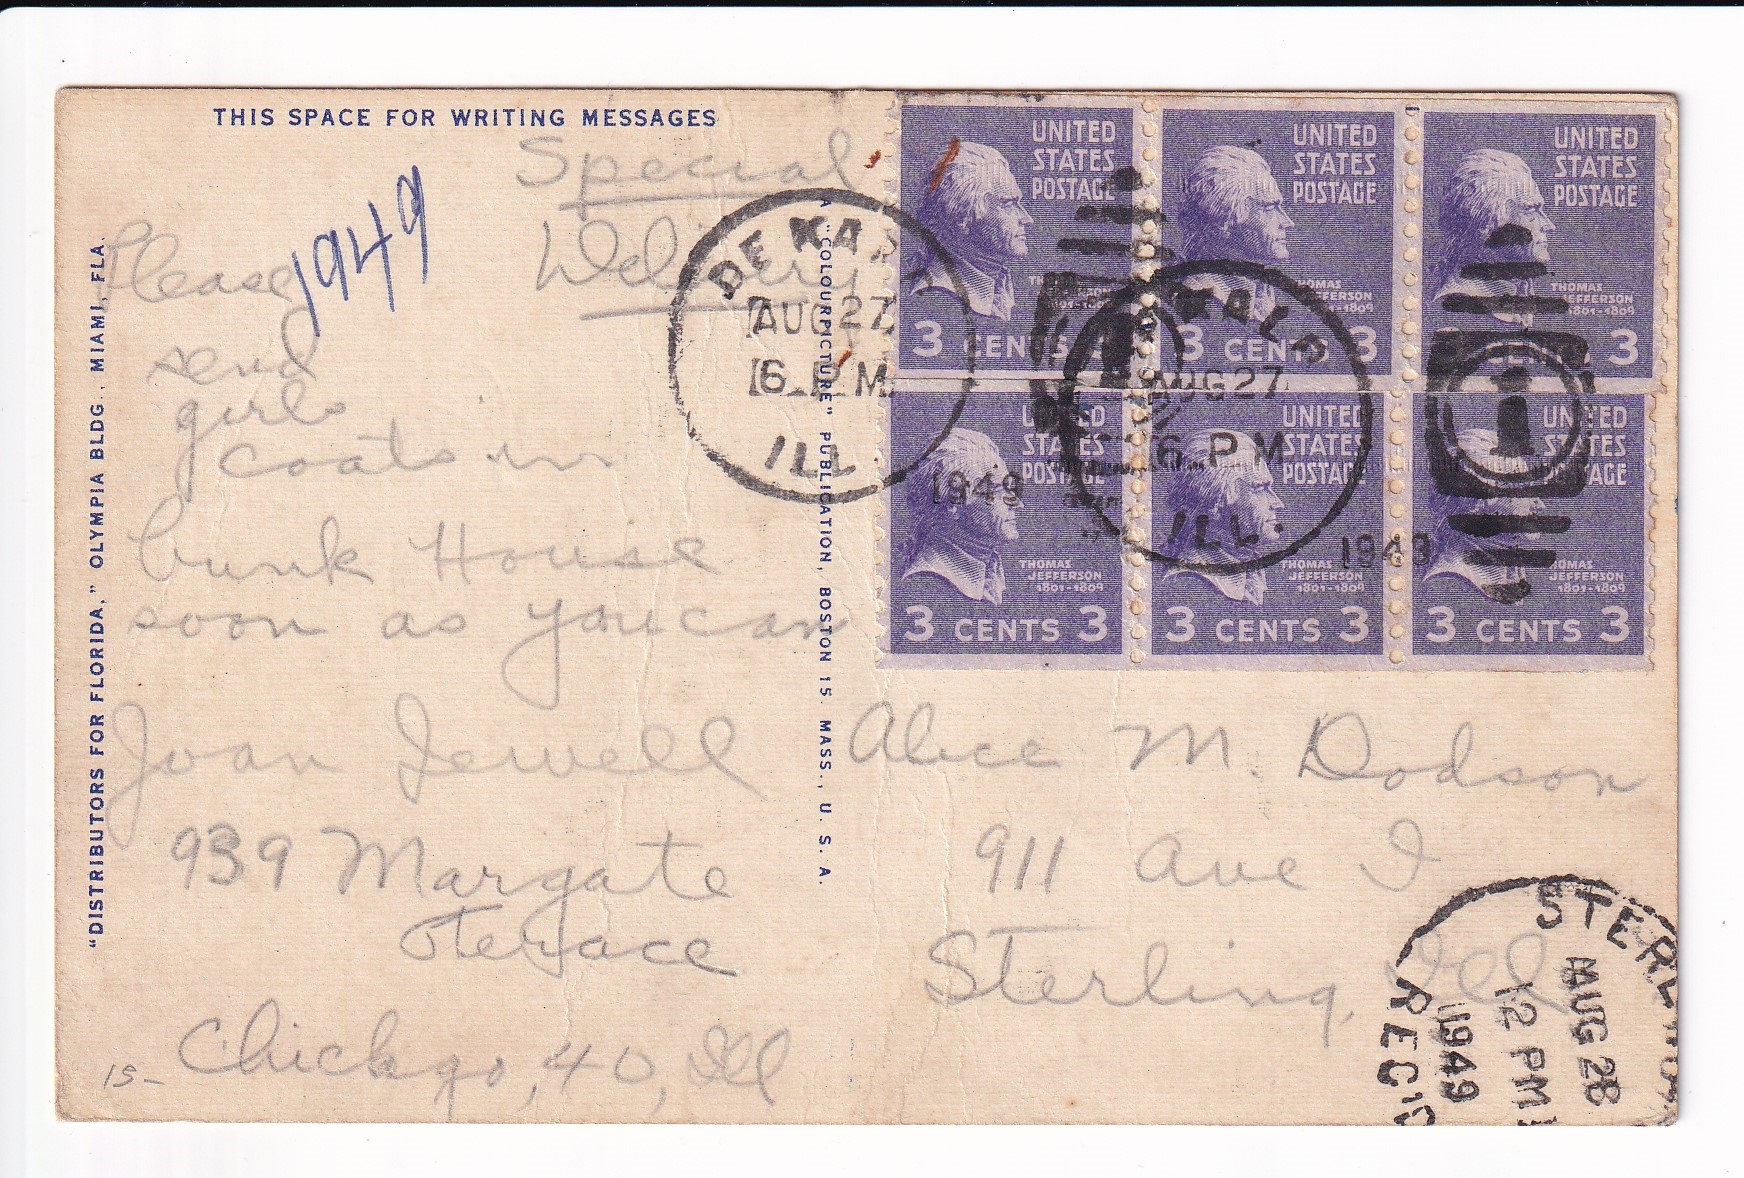 THIS SPACE FOR WRITING MESSAGES
Special
Delivery
1949
Please
send
girls
coats in
bunk House
soon as you can
Joan Jewell
939 Margate
Terrace
Chicago, 40, Ill
15-
"DISTRIBUTORS FOR FLORIDA," OLYMPIA BLDG., MIAMI, FLA.
A "COLOURPICTURE" PUBLICATION, BOSTON 15, MASS., U. S. A.
UNITED STATES POSTAGE
THOMAS JEFFERSON 1801-1809
3 CENTS 3
UNITED STATES POSTAGE
THOMAS JEFFERSON 1801-1809
3 CENTS 3
UNITED STATES POSTAGE
THOMAS JEFFERSON 1801-1809
3 CENTS 3
UNITED STATES POSTAGE
THOMAS JEFFERSON 1801-1809
3 CENTS 3
UNITED STATES POSTAGE
THOMAS JEFFERSON 1801-1809
3 CENTS 3
UNITED STATES POSTAGE
THOMAS JEFFERSON 1801-1809
3 CENTS 3
DE KALB
AUG 27
6 PM
ILL.
1949
DE KALB
AUG 27
6 PM
ILL.
1949
1
Alice M. Dodson
911 Ave I
Sterling, Ill
STERLING
AUG 28
12 PM
1949
REC'D